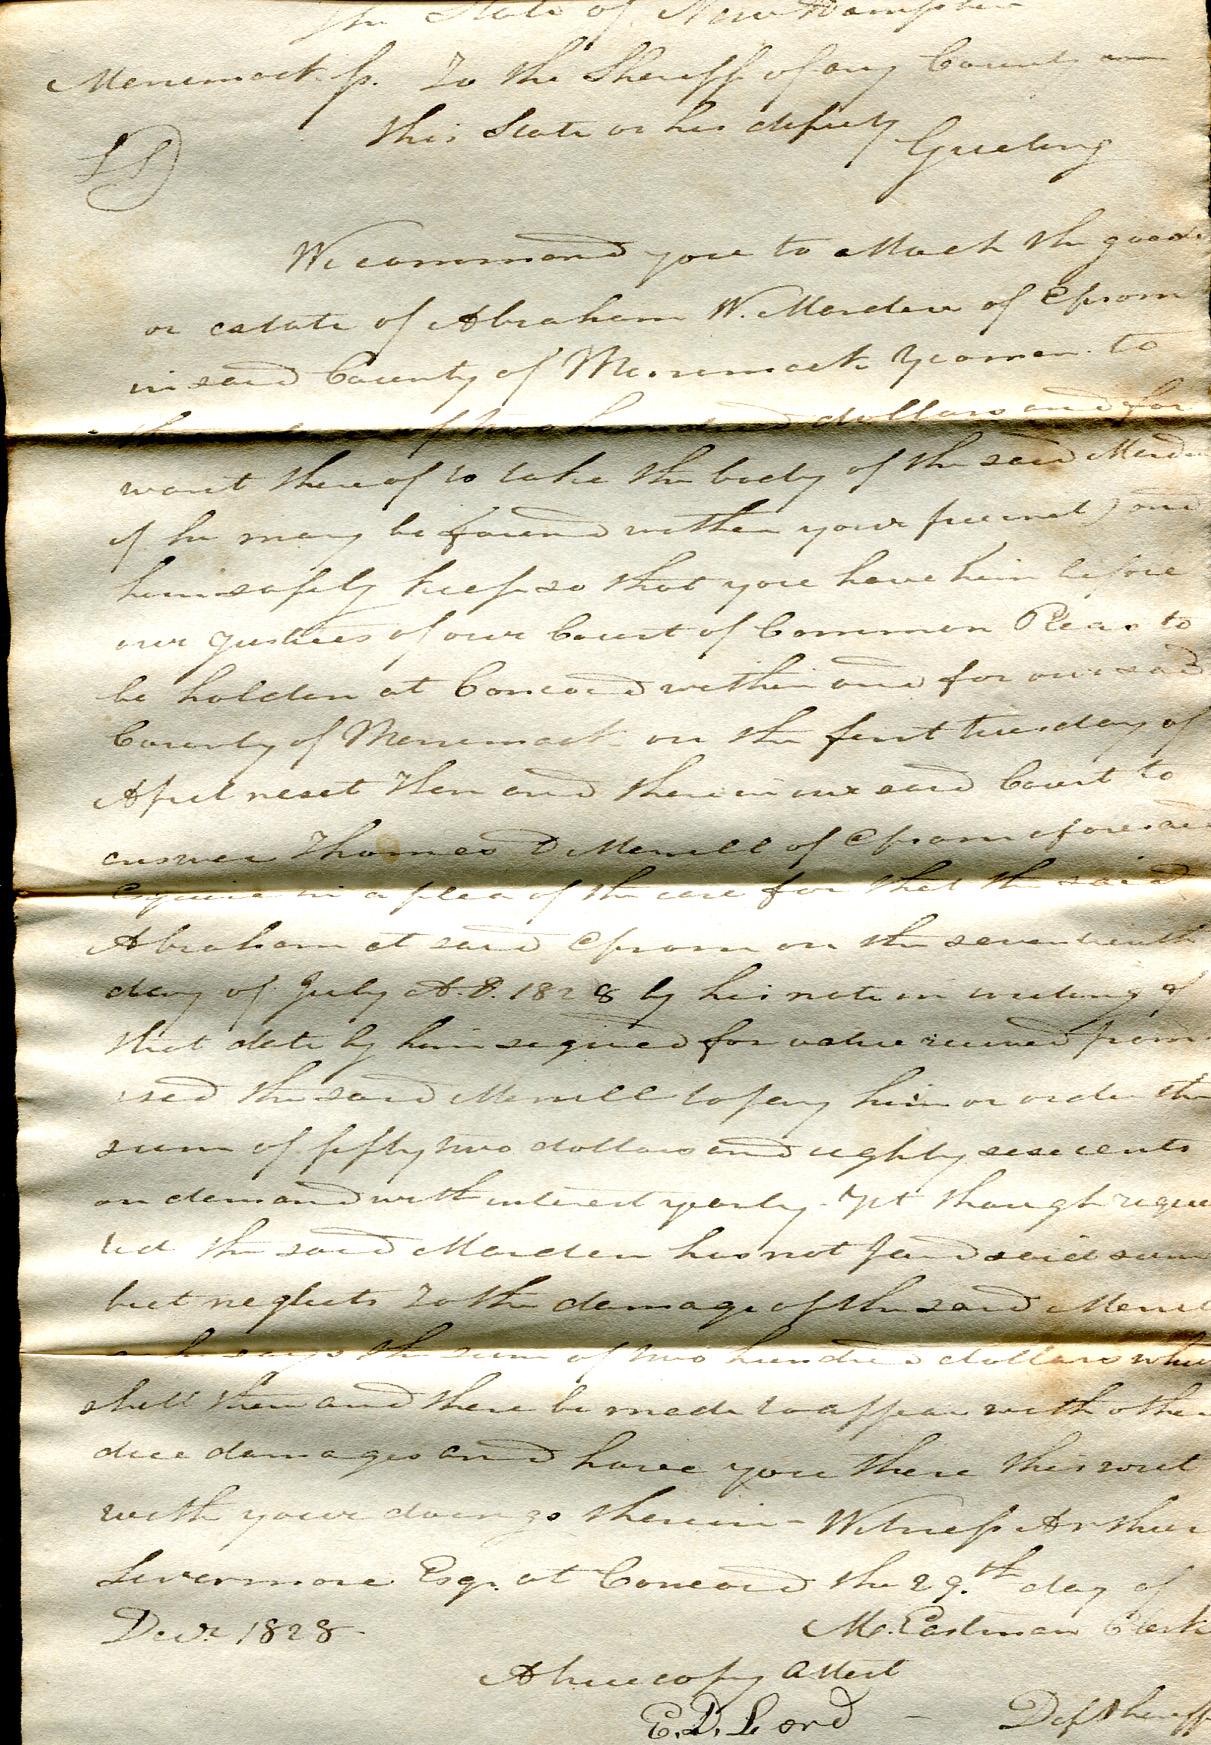 The State of New Hampshire
Merrimack ss. To the Sheriff of any County in
this State or his deputy
Greeting
LS
We command you to attach the goods
or estate of Abraham W. Marden of Epsom
in said County of Merrimack Yeoman to
the of two hundred dollars and for
want thereof to take the body of the said Marden
if he may be found within your precinct) and
him safely keep so that you have him before
our Justices of our Court of Common Pleas to
be holden at Concord within and for our said
County of Merrimack on the first tuesday of
April next Then and there in our said Court to
answer Thomas D Merrill of Epsom aforesaid
Esquire in a plea of the case for that the said
Abraham at said Epsom on the seventeenth
day of July A.D. 1828 by his note in writing of
that date by him signed for value received prom
ised the said Merrill to pay him or order the
sum of fifty two dollars and eighty six cents
on demand with interest yearly - Yet though reques
ted the said Marden has not paid said sum
but neglects To the damage of the said Merrill
as he says the sum of two hundred dollars which
shall then and there be made to appear with other
due damages and have you there this writ
with your doings therein - Witness Arthur
Livermore Esqr. at Concord the 29.th day of
Decr. 1828 -
M. Eastman Clerk
A true copy Attest
E. D. Lord - Dep Sheriff